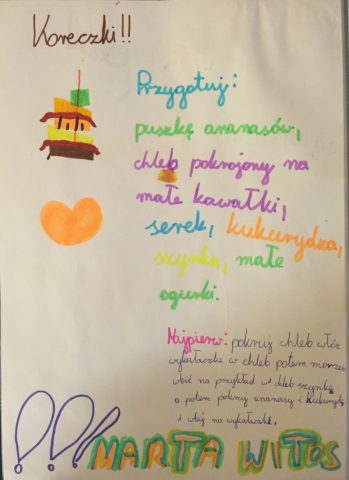 Koreczki!!
Przygotuj:
puszkę ananasów,
chleb pokrojony na
małe kawałki,
serek, kukurydza,
szynka, małe
ogurki.
Najpierw: pokruj chleb włóż
wykałaczke w chleb potem morzesz
wbić na przykład w chleb szynkę
a potem pokruj ananasy i kukurydzę
i wbij na wykałaczkę.
MARTA WITOS